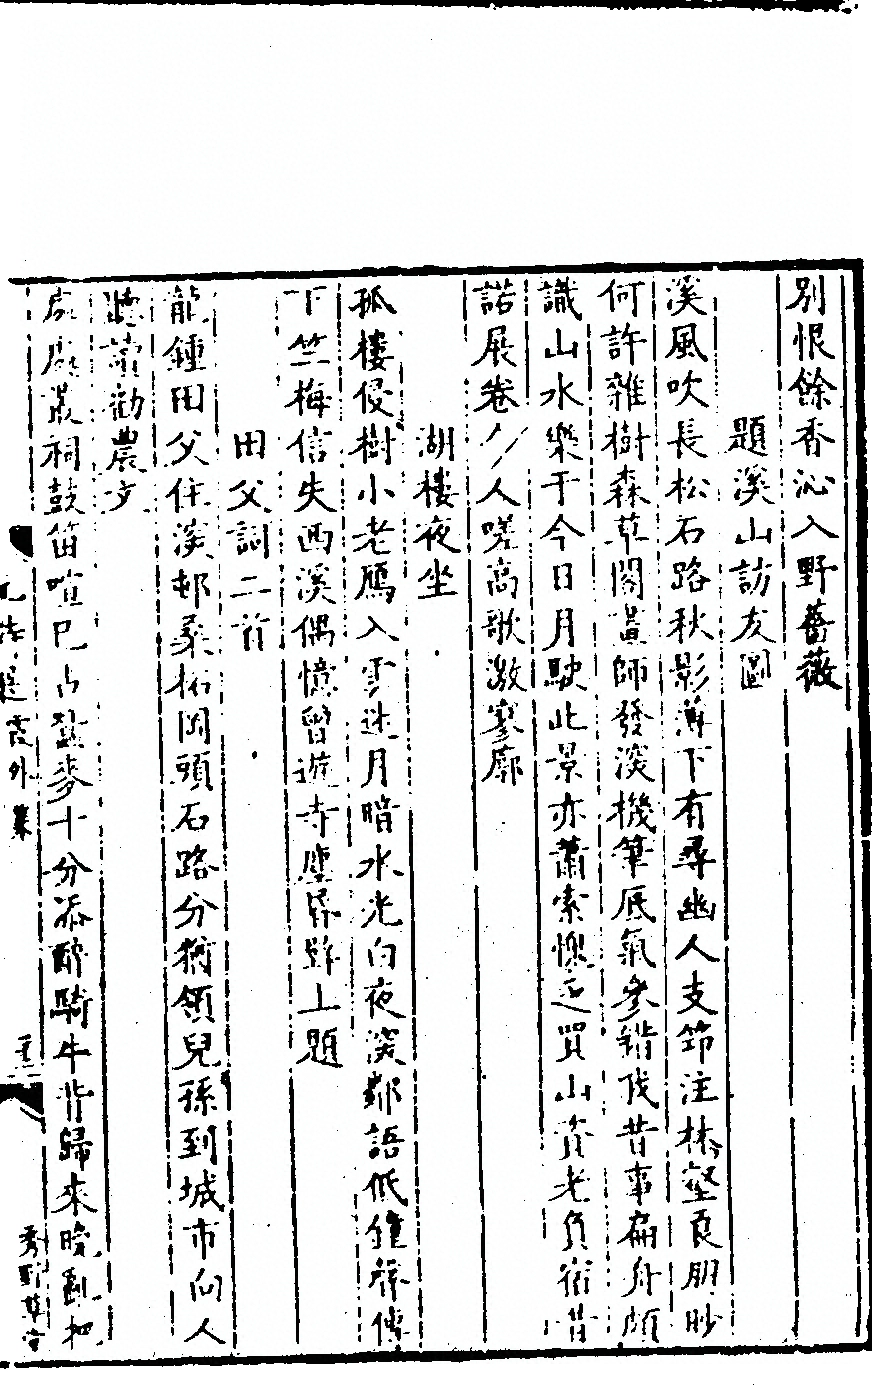 別恨餘香沁入野薔薇
題溪山訪友圖
溪風吹長松石路秋影薄下有尋幽人支笻注林壑良朋眇
何許雜樹森草閣畫師發深機筆底氣參錯伐昔事扁舟頗
識山水樂于今日月駛此景亦蕭索愧乏買山資老負宿昔
諾展卷八八人嗟高歌激寥廓
湖樓夜坐
孤樓侵樹小老鴈入雲迷月暗水光白夜深鄰語低鐘聲傳
下竺梅信失西溪偶憶曾遊寺塵昏壁上題
田父詞二首
龍鍾田父住溪邨桑柘岡頭石路分猶領兒孫到城市向人
聽讀勸農文
處處叢祠鼓笛喧巳占蠶麥十分添醉騎牛背歸來晚亂把
霞外集
秀野草堂